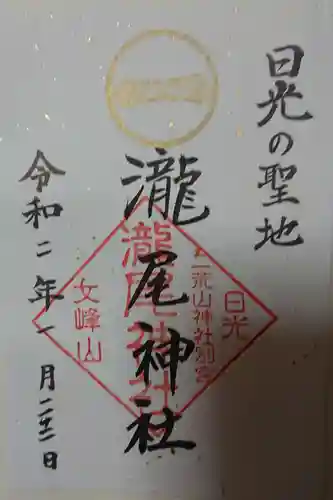 日光の聖地
瀧尾神社
令和二年一月二十二日
日光
二荒山神社別宮
瀧尾神社
女峰山